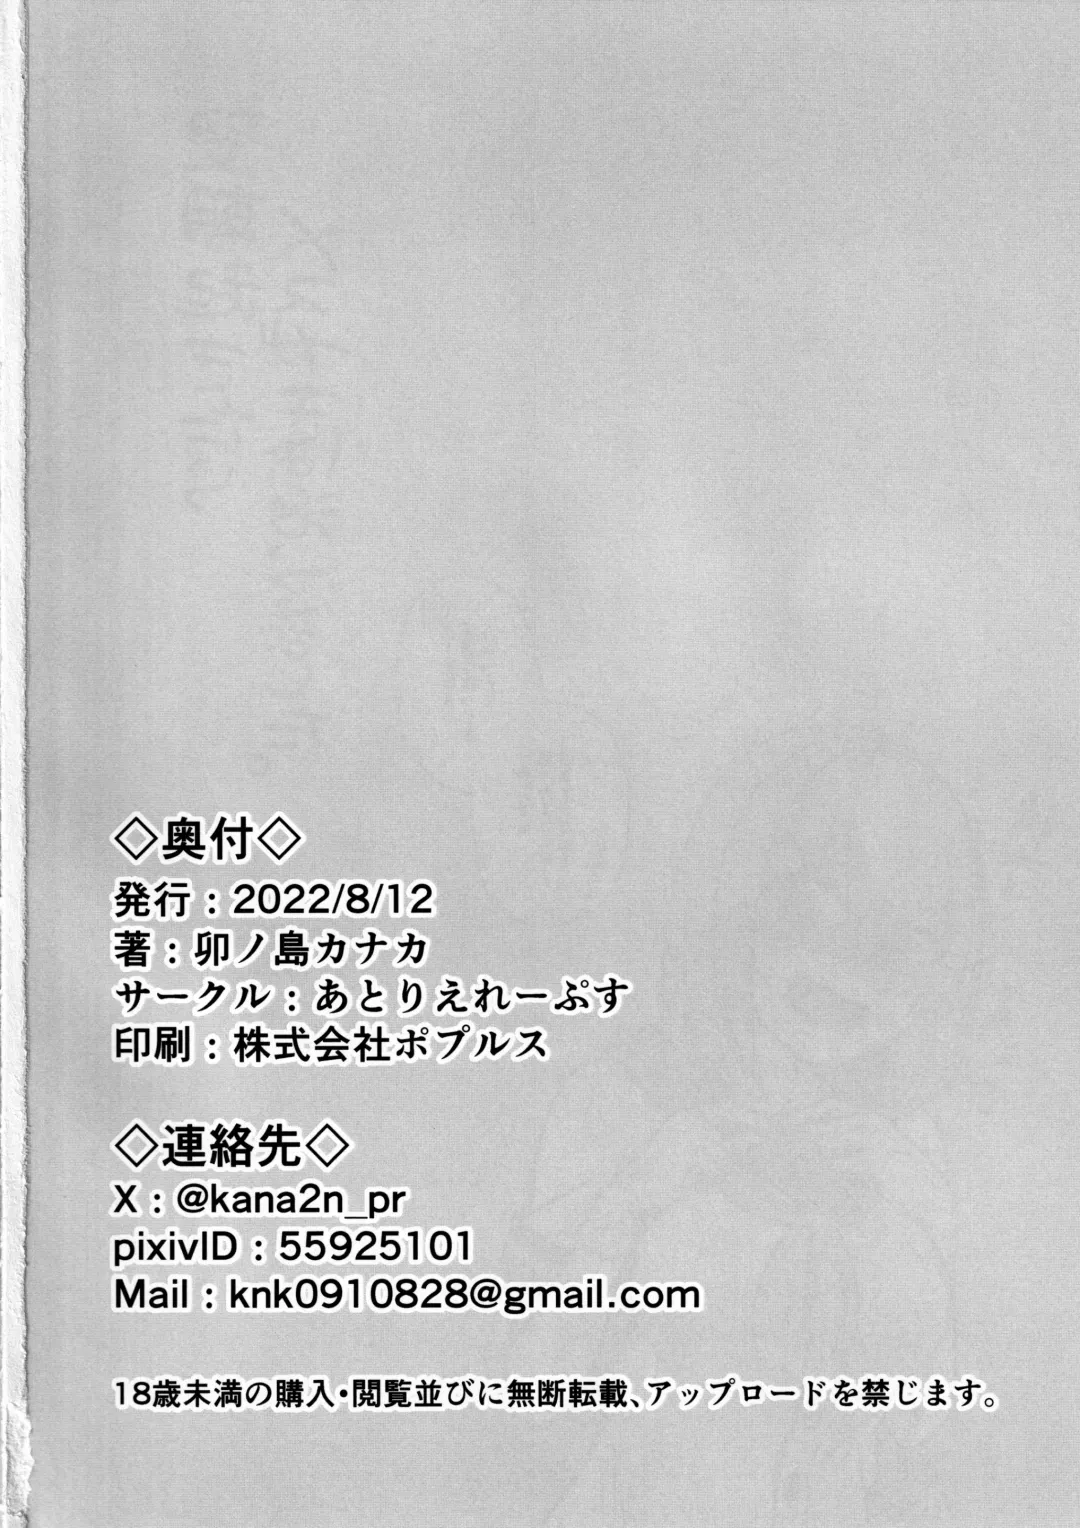 ◇奥付◇
発行：2022/8/12
著：卯ノ島カナカ
サークル：あとりえれーぷす
印刷：株式会社ポプルス
◇連絡先◇
X：@kana2n_pr
pixivID：55925101
Mail：knk0910828@gmail.com
18歳未満の購入・閲覧並びに無断転載、アップロードを禁じます。